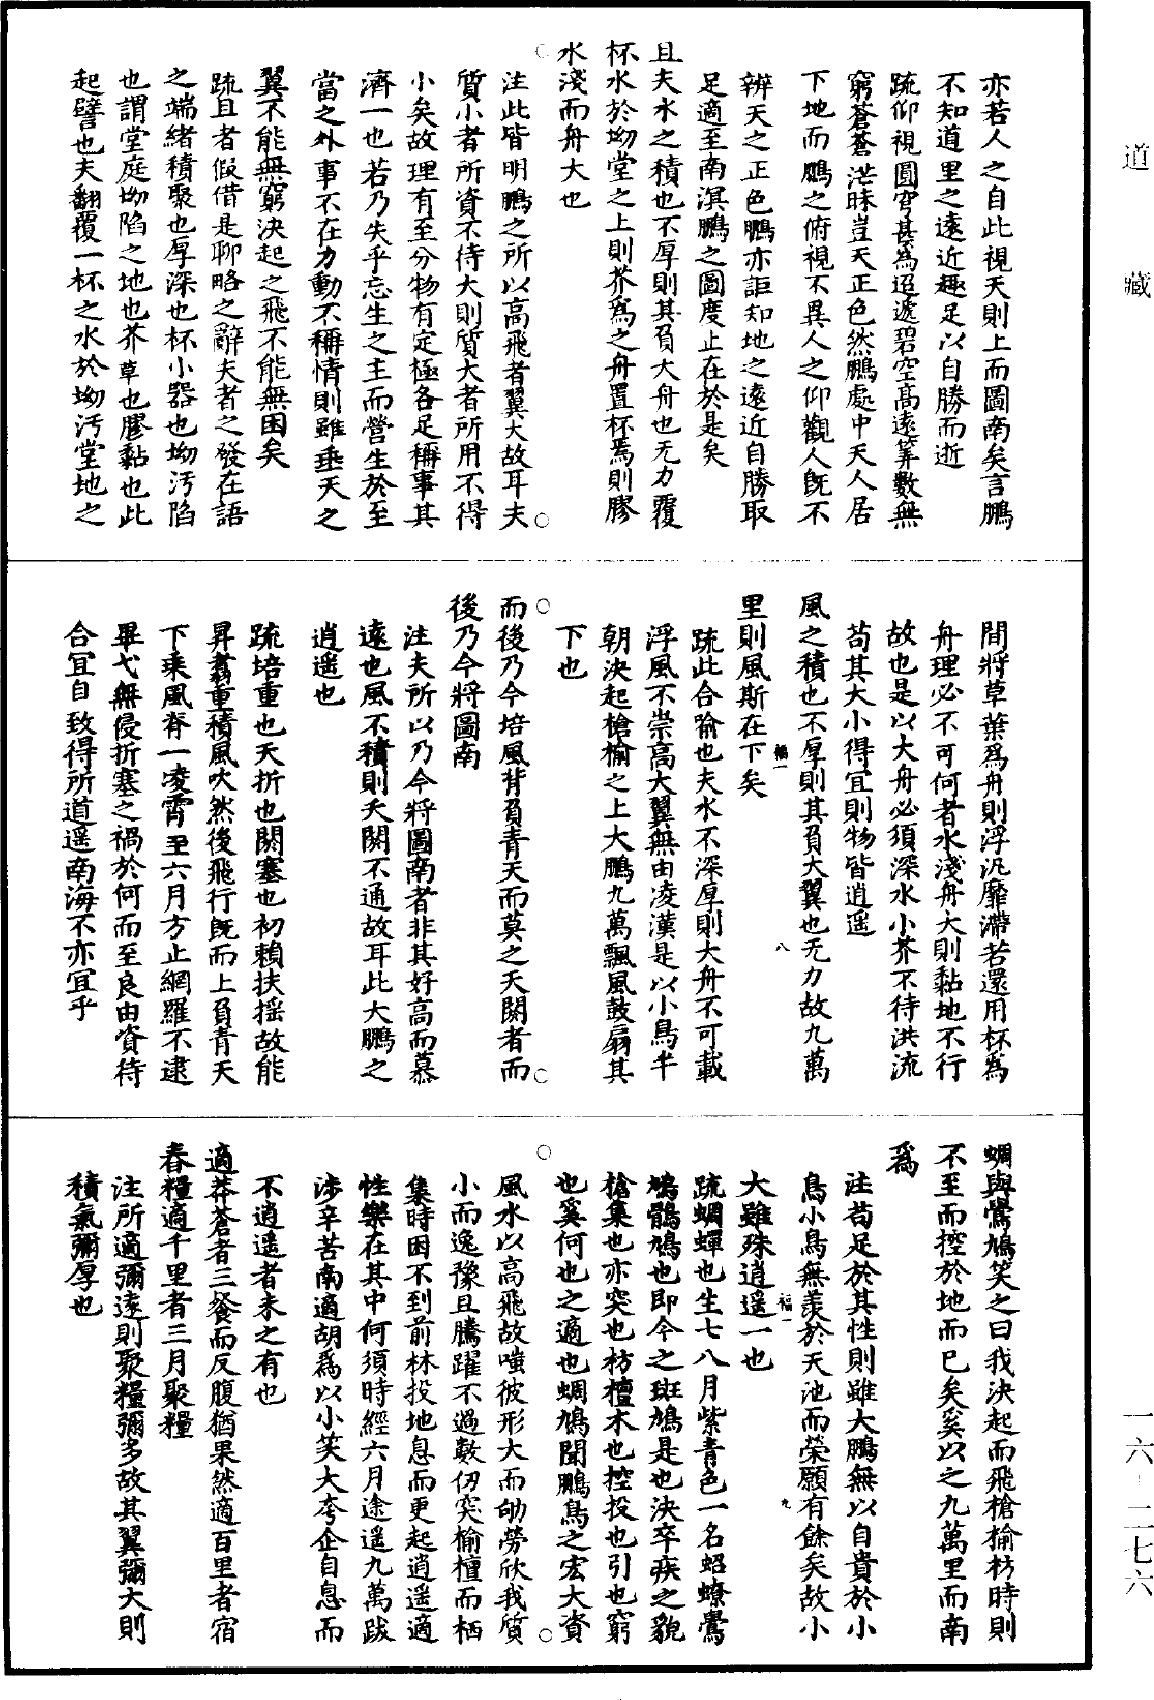 道藏
亦若人之自此視天則上而圖南矣言鵬
不知道里之遠近趣足以自勝而逝
疏仰視圓穹甚為迢遞碧空高遠筭數無
窮蒼蒼茫昧豈天正色然鵬處中天人居
下地而鵬之俯視不異人之仰觀人旣不
辨天之正色鵬亦詎知地之遠近自勝取
足適至南溟鵬之圖度止在於是矣
且夫水之積也不厚則其負大舟也无力覆
杯水於坳堂之上則芥為之舟置杯焉則膠
水淺而舟大也
注此皆明鵬之所以高飛者翼大故耳夫
質小者所資不待大則質大者所用不得
小矣故理有至分物有定極各足稱事其
濟一也若乃失乎忘生之主而營生於至
當之外事不在力動不稱情則雖垂天之
翼不能無窮決起之飛不能無困矣
疏且者假借是聊略之辭夫者之發在語
之端緒積聚也厚深也杯小器也坳汚陷
也謂堂庭坳陷之地也芥草也膠黏也此
起譬也夫翻覆一杯之水於坳汚堂地之
間將草葉為舟則浮汎靡滯若還用杯為
舟理必不可何者水淺舟大則黏地不行
故也是以大舟必須深水小芥不待洪流
苟其大小得宜則物皆逍遥
風之積也不厚則其負大翼也无力故九萬
里則風斯在下矣
福一 八
疏此合喻也夫水不深厚則大舟不可載
浮風不崇高大翼無由凌漢是以小鳥半
朝決起槍榆之上大鵬九萬飄風鼓扇其
下也
而後乃今培風背負青天而莫之夭閼者而
後乃今將圖南
注夫所以乃今將圖南者非其好高而慕
遠也風不積則夭閼不通故耳此大鵬之
逍遥也
疏培重也夭折也閼塞也初賴扶摇故能
昇翥重積風吹然後飛行旣而上負青天
下乘風脊一凌霄至六月方止網羅不逮
畢弋無侵折塞之禍於何而至良由資待
合宜自致得所道遥南海不亦宜乎
蜩與鷽鳩笑之曰我決起而飛槍榆枋時則
不至而控於地而已矣奚以之九萬里而南
為
注苟足於其性則雖大鵬無以自貴於小
鳥小鳥無羨於天池而榮願有餘矣故小
大雖殊逍遥一也
福一 九
疏蜩蟬也生七八月紫青色一名蛁蟟鷽
鳩鶻鳩也即今之斑鳩是也決卒疾之貌
槍集也亦突也枋檀木也控投也引也窮
也奚何也之適也蜩鳩聞鵬鳥之宏大資
風水以高飛故嗤彼形大而劬勞欣我質
小而逸豫且騰躍不過數仞突榆檀而栖
集時困不到前林投地息而更起逍遥適
性樂在其中何須時經六月途遥九萬跋
涉辛苦南適胡為以小笑大夸企自息而
不逍遥者未之有也
適莽蒼者三餐而反腹猶果然適百里者宿
舂糧適千里者三月聚糧
注所適彌遠則聚糧彌多故其翼彌大則
積氣彌厚也
一六·二七六